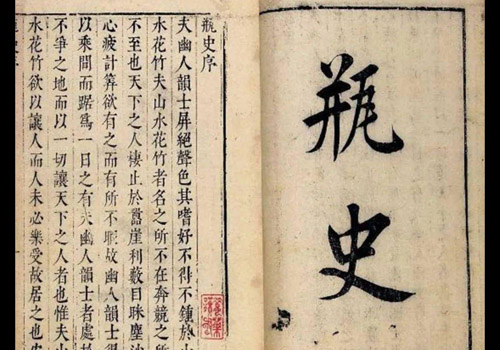 瓶史
瓶史序
夫幽人韻士屏絕聲色其嗜好不得不鍾於山
水花竹夫山水花竹者名之所不在奔競之所
不至也天下之人棲止於囂崖利藪目眯塵沙
心疲計筭欲有之而有所不暇故幽人韻士得
以乘間而踞為一日之有夫幽人韻士者處於
不爭之地而以一切讓天下之人者也惟夫山
水花竹欲以讓人而人未必樂受故居之也安